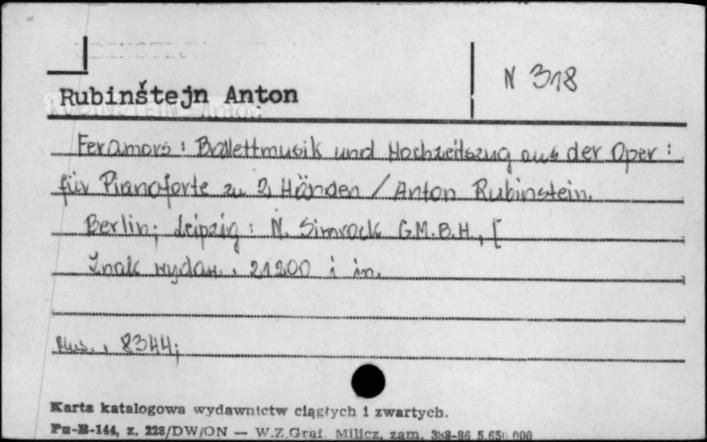 N 318
Rubinštejn Anton
Feramors : Ballettmusik und Hochzeitszug aus der Oper :
für Pianoforte zu 2 Händen / Anton Rubinstein.
Berlin ; Leipzig : N. Simrock G.M.B.H., [
Znak wydaw. . 21200 i in.
Mus. . 8344;
Karta katalogowa wydawnictw ciągłych i zwartych.
Pu-B-144, z. 228/DW/ON — W.Z.Graf. Milicz, zam. 388-86 5.650.000